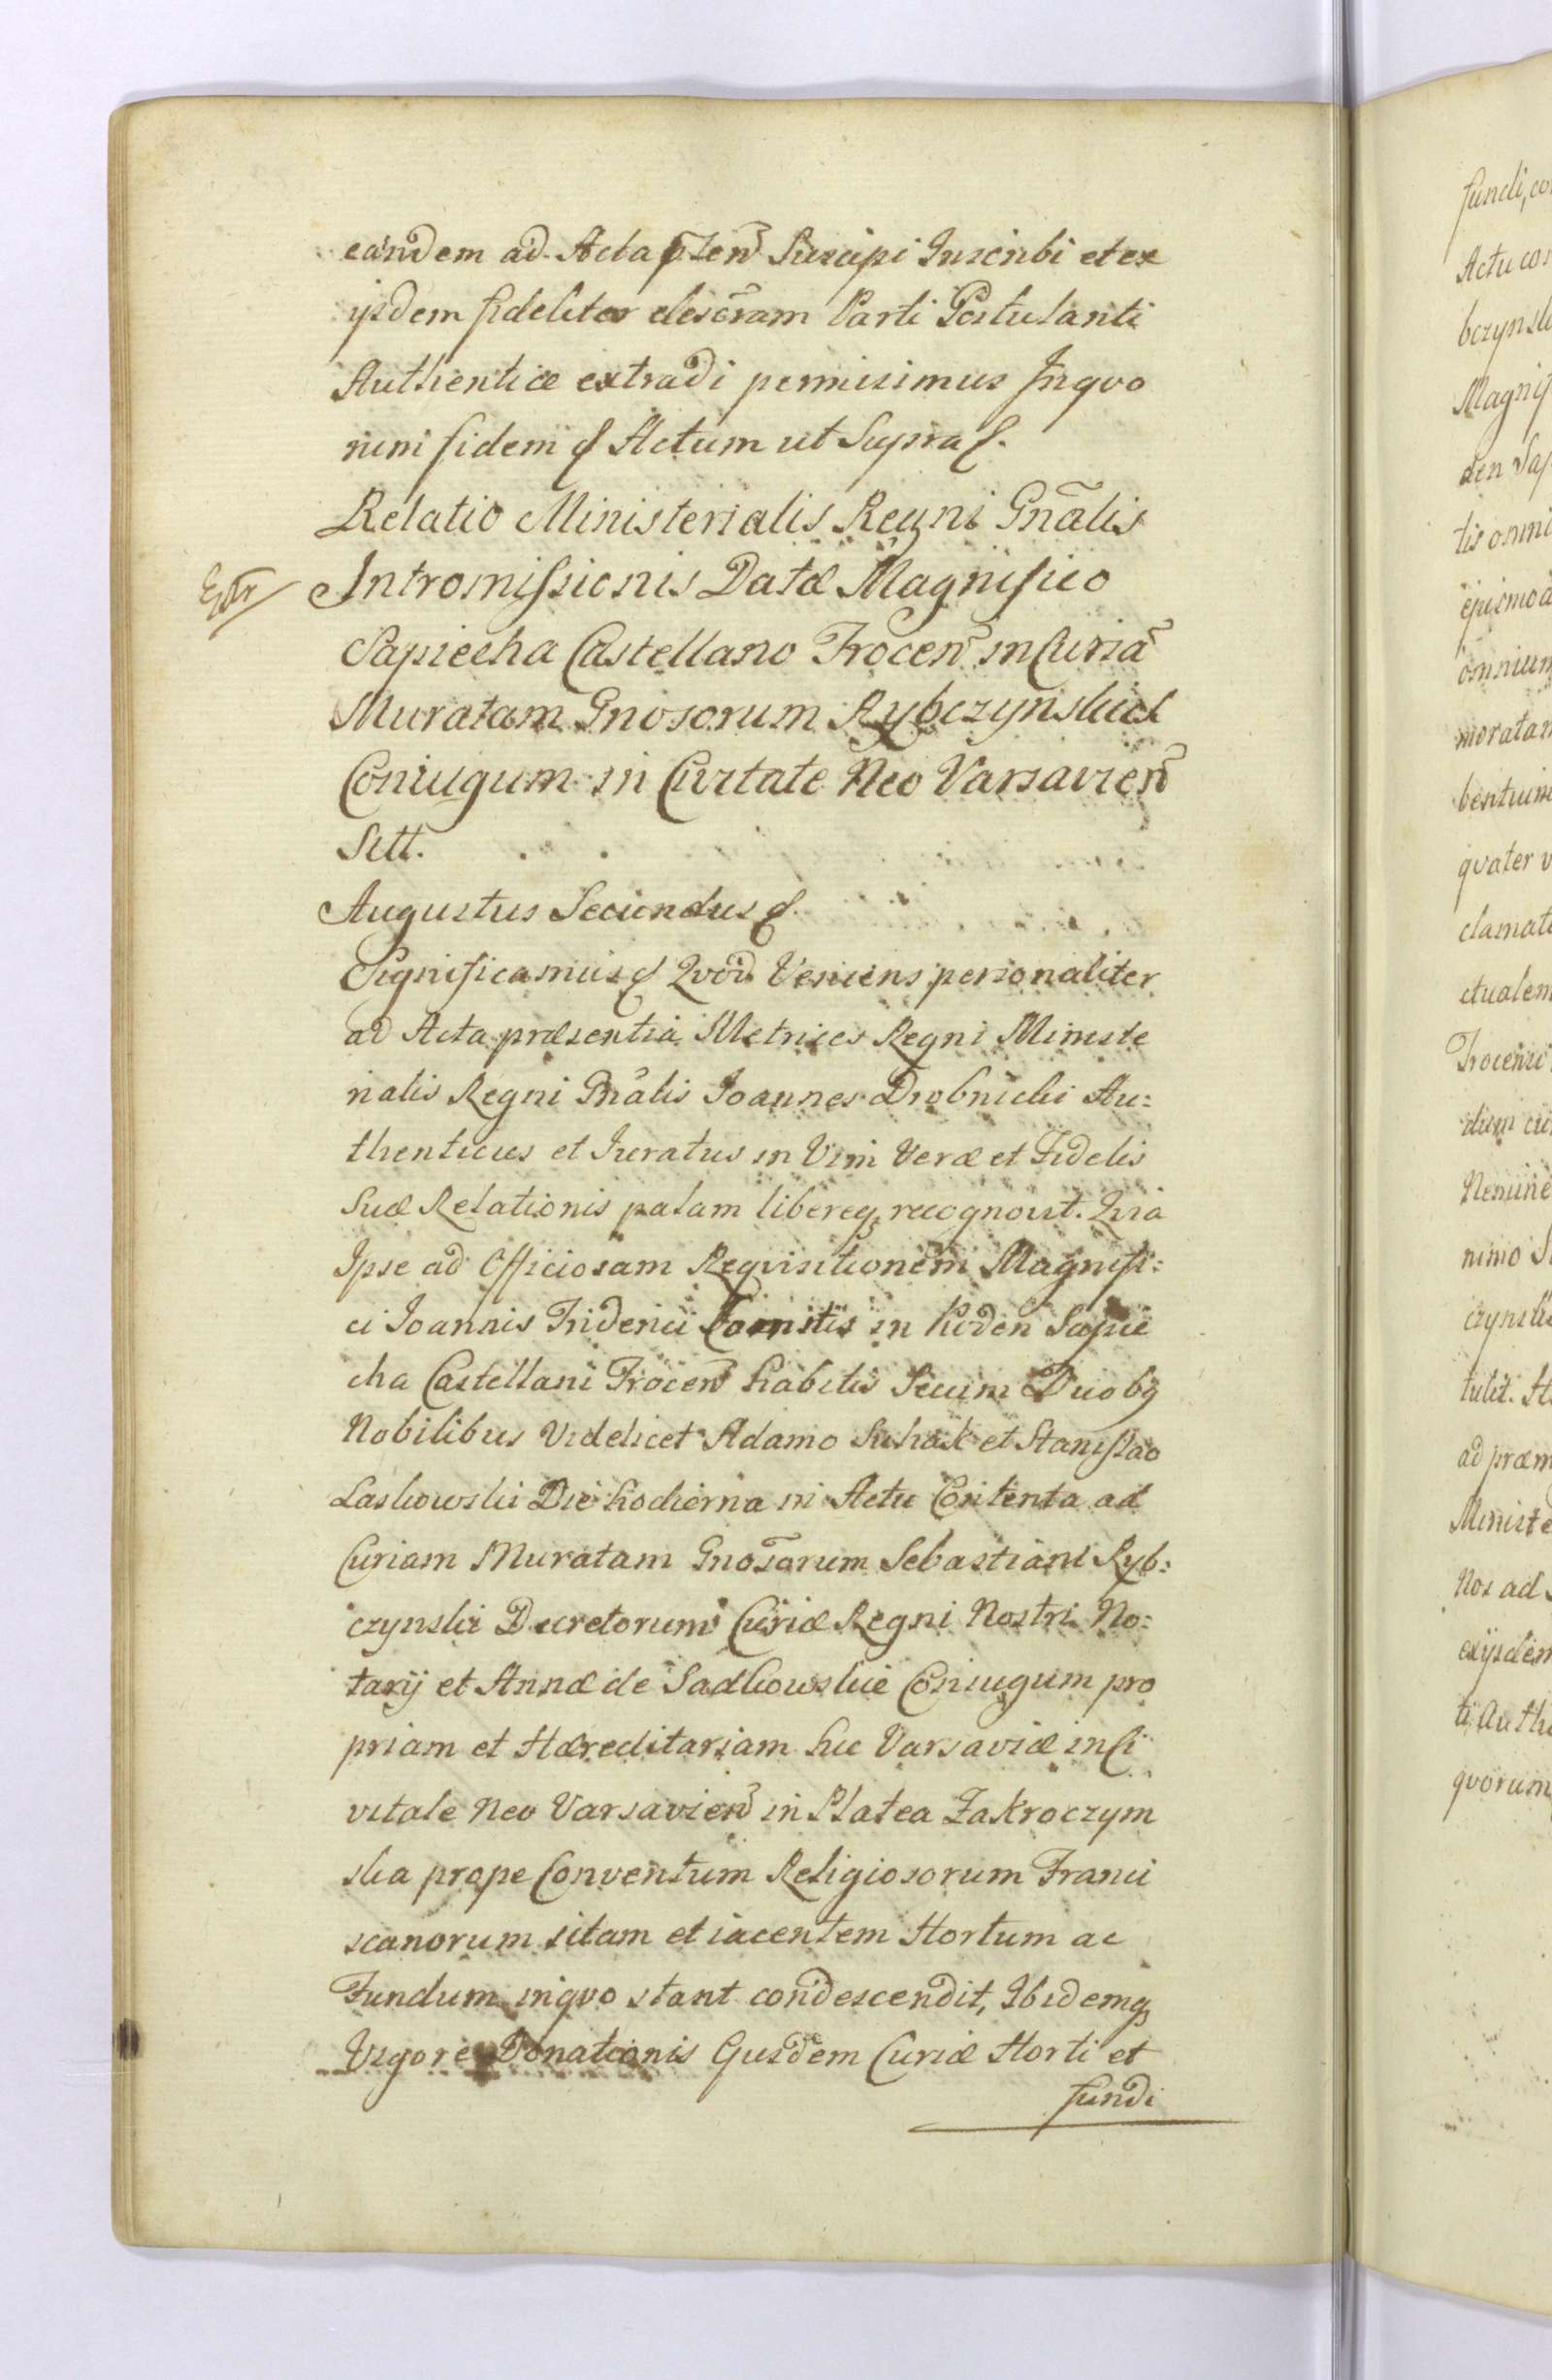 eandem ad Acta pñten̄ Suscipi Inscribi et ex
ijsdem fideliter descr̄am Parti Postulanti
Authentice extradi permisimus Inqvo
rum fidem &c Actum ut Supra &c.
Relatio Ministerialis Regni Gn̄alis
Extr Intromissionis Datæ Magnifico
Sapiecha Castellano Trocen̄ in Curiā
Muratam Gnosorum Rybczynskich
Coniugum in Civitate Neo Varsavien̄
Sitt.
Augustus Secundus &c.
Significamus &c Qvod Veniens personaliter
ad Acta præsentia Metrices Regni Ministe
rialis Regni Gn̄alis Joannes Drobnicki Au:
thenticus et Juratus in Vim Veræ et Fidelis
Suæ Relationis palam libereq, recognovit. Qvia
Ipse ad Officiosam Reqvisitionem Magnifi:
ci Joannis Friderici Comitis in Koden Sapie
cha Castellani Trocen̄ habitis Secum Duobg
Nobilibus Videlicet Adamo Suhak et Stanislao
Laskowski Die hodierna in Actu Contenta ad
Curiam Muratam Gnosorum Sebastiani Ryb:
czynski Decretorum Curiæ Regni Nostri No:
tarij et Annæ de Sadkowskie Coniugum pro
priam et Hæreditariam hic Varsaviæ in Ci
vitate Neo Varsavien̄ in Platea Zakroczym
ska prope Conventum Religiosorum Franci
scanorum sitam et iacentem Hortum ac
Fundum inqvo stant condescendit, Ibidemq,
Vigore Donationis Eiusdem Curiæ Horti et
fundi
fundi, co
Actu con
bczynski
Magnif
den Sap
tis omni
ejusmod
omnium
moratam
bentium
qvater v
clamat
ctualem
Trocensi
dum cu
Nemine
nimo S
czynski
tulit. H
ad præm
Ministe
Nos ad
exijsdem
ti Authe
qvorum